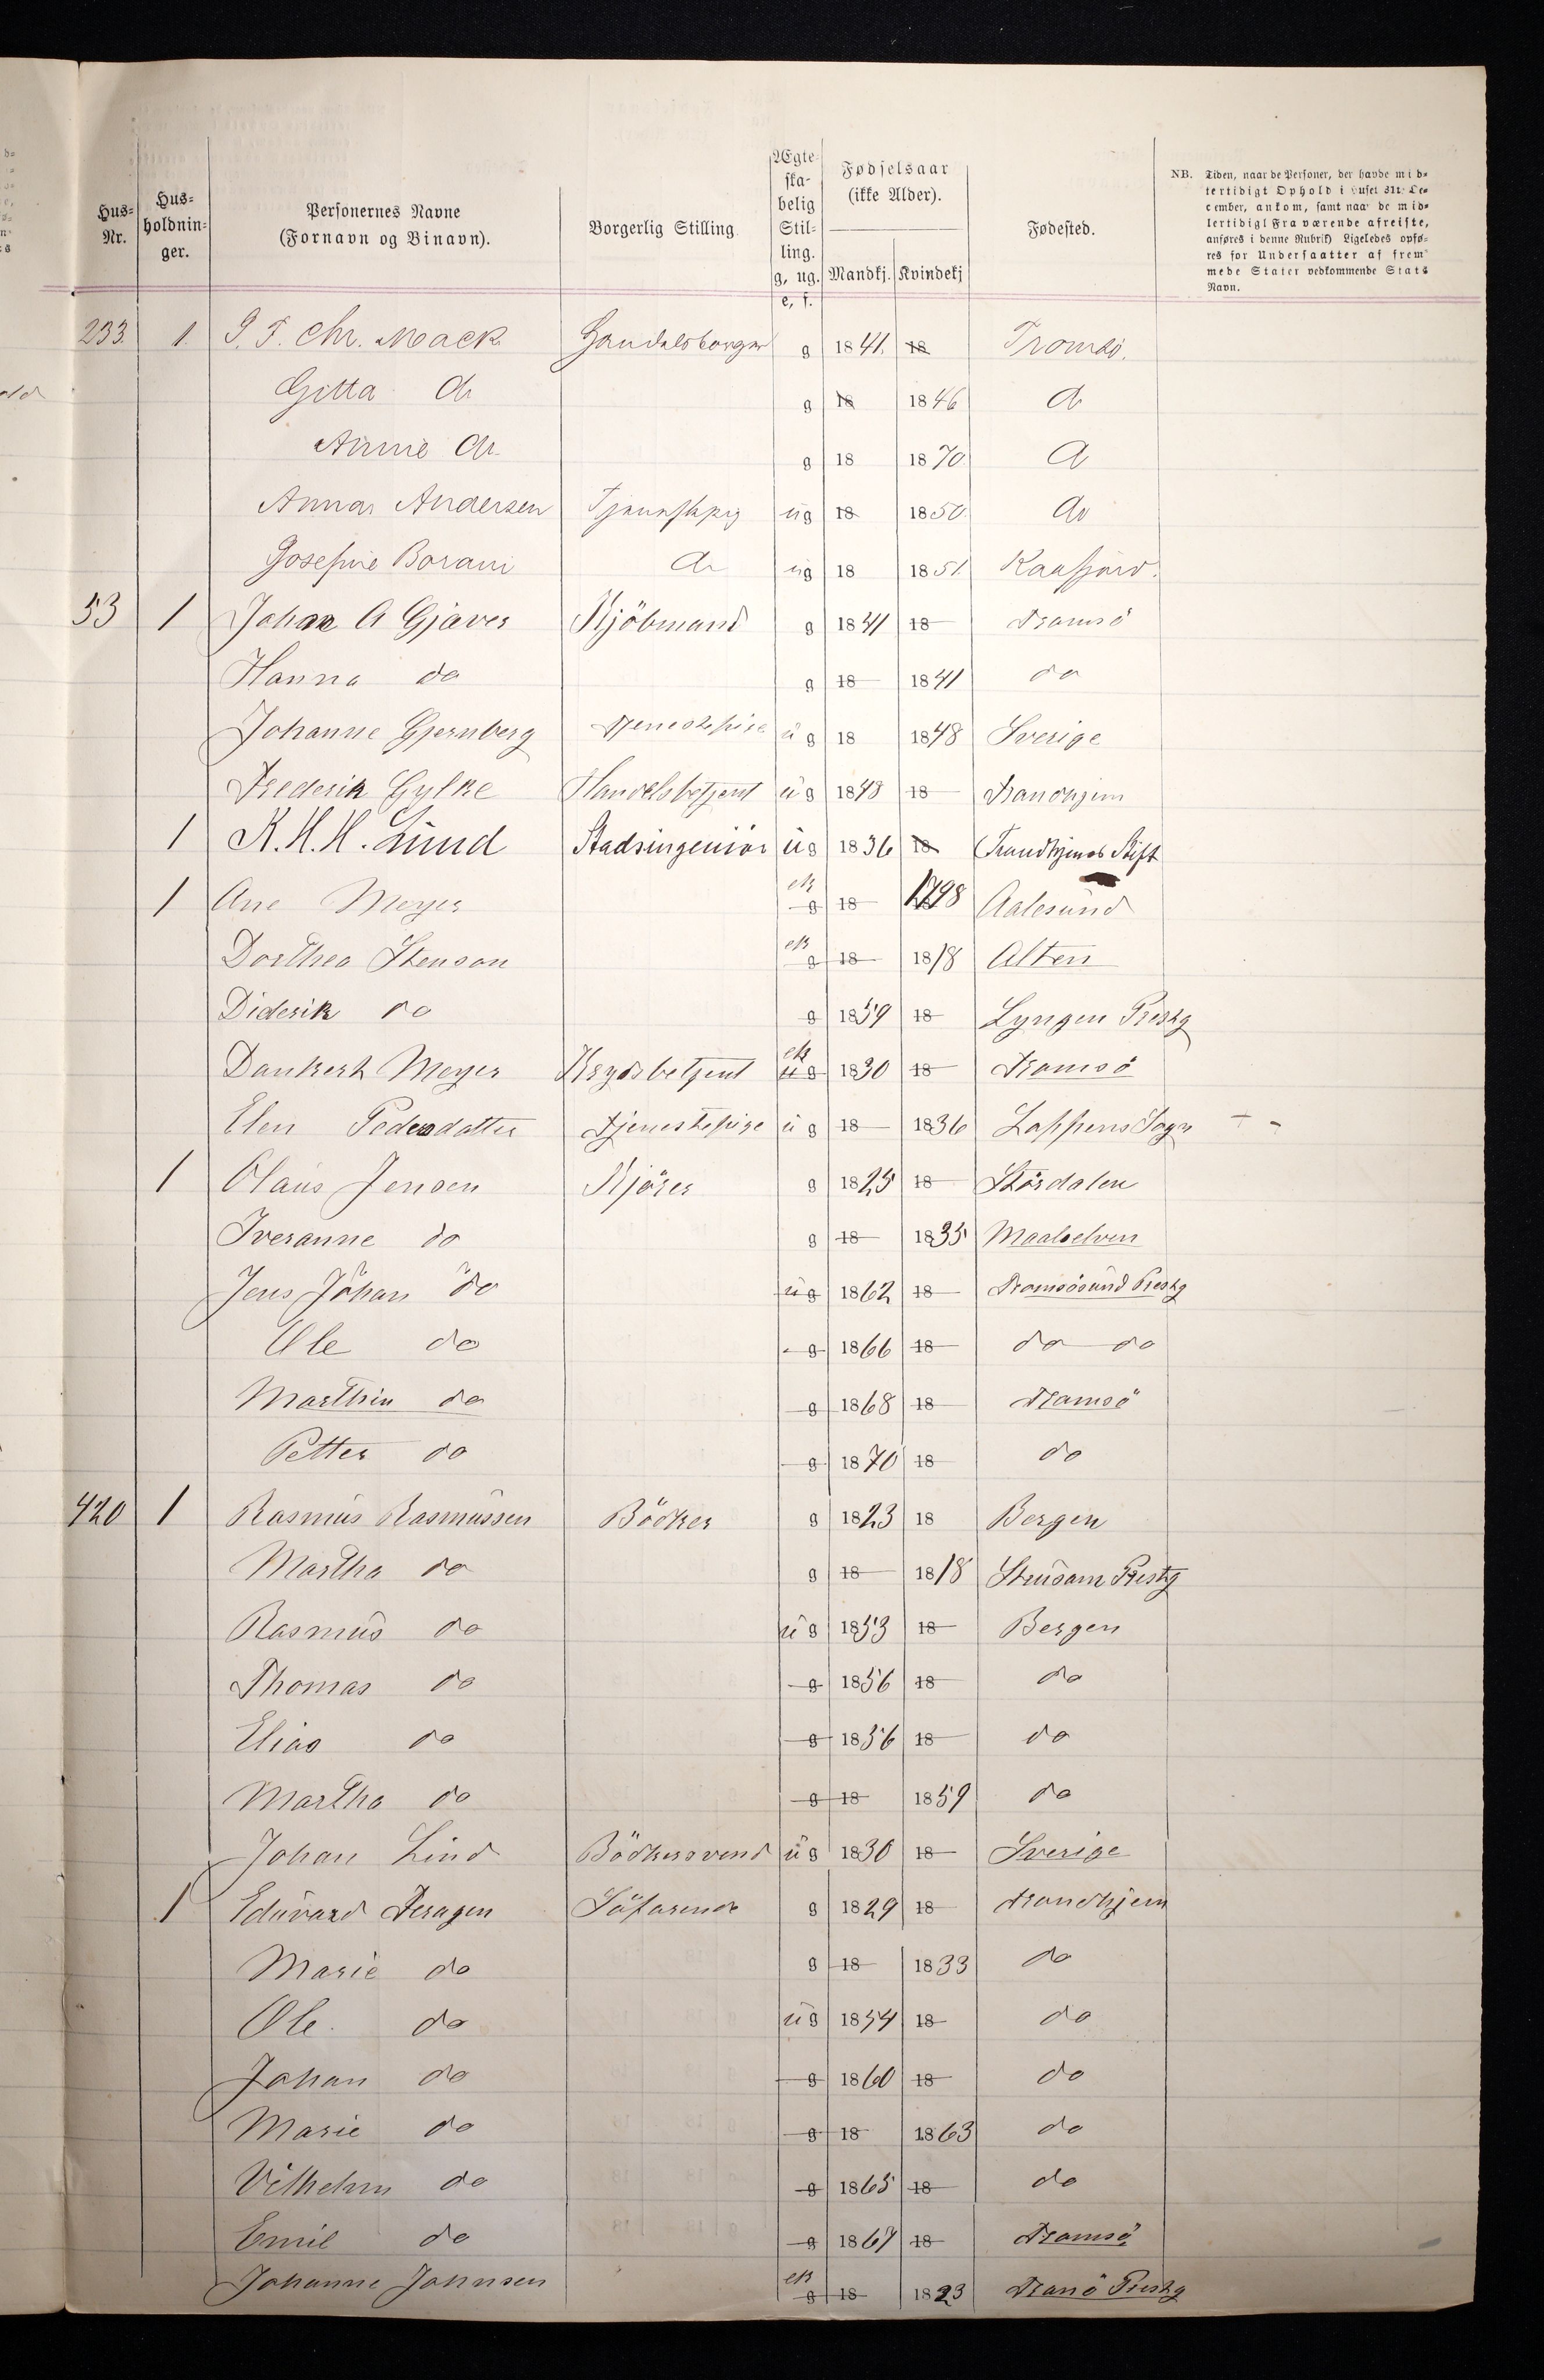 Hus-Nr. Husholdninger. Personernes Navne (Fornavn og Binavn). Borgerlig Stilling Ægteskabelig Stilling. g, ug. e, f. Fødselsaar (ikke Alder). Mandkj. Kvindekj Fødested.
NB. Tiden, naar de Personer, der havde mid-
lertidigt Ophold i Huset 31te De-
cember, ankom, samt naar de mid-
lertidigt Fraværende afreiste,
anføres i denne Rubrik) Ligeledes opfø-
res for Undersaatter af frem-
mede Stater vedkommende Stats
Navn.
233. 1. Chr. Mack Handelsborger g 1841. 18 Tromsö.
Gitta do g 18 1846 do
Annie do g 18 1870 do
Anna Andersen Tjenestepig ug 18 1850 do
Josefine Borani do ug 18 1851. Kaafjord.
53 1 Johan A Gjæver Kjöbmand g 1841 18 Tromsö
Hanna do g 18 1841 do
Johanne Gjernberg Tjenestepige ug 18 1848 Sverige
Frederik Gylke Handelsbetjent ug 1848 18 Trondhjem
1 K. H. H. Lund Stadsingeniör ug 1836 18 Trondhjems Stift
1 Ane Meyer ek g 18 1798 Aalesund
Dorthea Stenson ek g 18 1818 Alten
Diderik do g 1859 18 Lyngen Præstg
Dankert Meyer Krydsbetjent ek ug 1830 18 Tromsö
Elen Pedersdatter Tjenestepige ug 18 1836 Lappens Sogn
1 Olaus Jensen Kjörer g 1825 18 Stördalen
Iveranne do g 18 1835 Maalselven
Jens Johan do ug 1862 18 Tromsösund Prestg
Ole do g 1866 18 do do
Marthin do g 1868 18 Tromsö
Petter do g 1870 18 do
420 1 Rasmus Rasmussen Bödker g 1823 18 Bergen
Martha do g 18 1818 Strusam Prestg
Rasmus do ug 1853 18 Bergen
Thomas do g 1856 18 do
Elias do g 1856 18 do
Martha do g 18 1859 do
Johan Lind Bödkersvend ug 1830 18 Sverige
1 Eduvard Teragen Söfarende g 1829 18 Trondhjem
Marie do g 18 1833 do
Ole do ug 1854 18 do
Johan do g 1860 18 do
Marie do g 18 1863 do
Vilhelm do g 1865 18 do
Emil do g 1867 18 Tromsö
Johanne Johnsen ek g 18 1823 Tranö Prestg